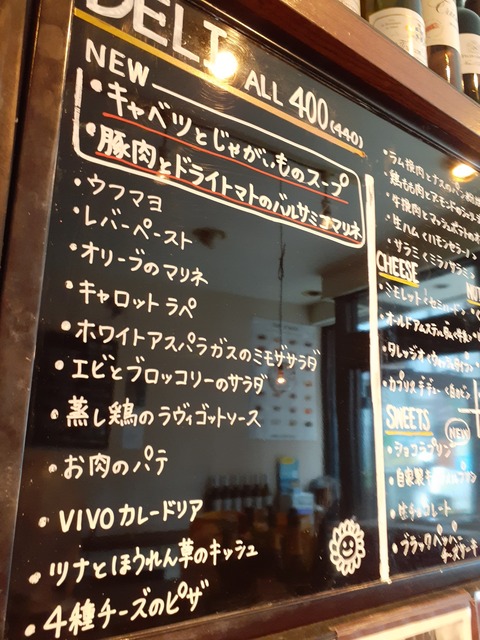 DELI ALL 400(440)
NEW
・キャベツとじゃがいものスープ
・豚肉とドライトマトのバルサミコマリネ
・ウフマヨ
・レバーペースト
・オリーブのマリネ
・キャロットラペ
・ホワイトアスパラガスのミモザサラダ
・エビとブロッコリーのサラダ
・蒸し鶏のラヴィゴットソース
・お肉のパテ
・VIVOカレードリア
・ツナとほうれん草のキッシュ
・4種チーズのピザ
・ラム挽肉とナスの
・鶏もも肉とアーモンドの
・牛挽肉とマッシュポテトの
・生ハム<ハモンセラーノ
・サラミ<ミラノサラミ>
CHEESE
・ミモレット<セミハード>
・オールドアムステルダム
・タレッジオ
・カプリスデデュー<白カビ
SWEETS
NEW
・ショコラプリン
・自家製
・生チョコレート
・ブラックペッパー
チーズケーキ